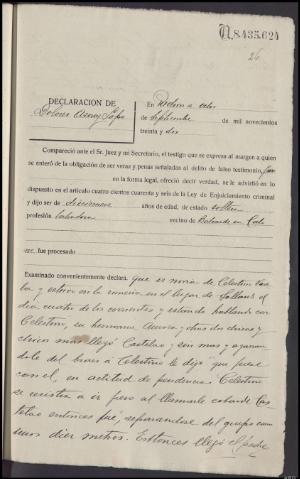 N.8.435.624
26
DECLARACION DE
Dolores
En a ocho
de Septiembre de mil novecientos
treinta y dos
Compareció ante el Sr. Juez y mi Secretario, el testigo que se expresa al margen a quien
se enteró de la obligación de ser veraz y penas señaladas al delito de falso testimonio,
en la forma legal, ofreció decir verdad, se le advirtió en lo
dispuesto en el artículo cuatro cientos cuarenta y seis de la Ley de Enjuiciamiento criminal
y dijo ser de diecinueve años de edad, de estado soltera
profesión labradora vecino de
no fue procesado
Examinado convenientemente declara: que es novia de Celestino
y estuvo en la romería en el lugar de el
día cuatro de los corrientes y estando hablando con
Celestino, su hermana Aurora y otras dos chicas y
chicos más llegó Castelao y con mas y agarran
dole del brazo a Celestino le dijo que fuese
con el, en actitud de pendencia, Celestino
se resistía a ir pero al llamarle cobarde Cas
telao entonces fué, separandose del grupo como
unos diez metros. Entonces llegó el padre